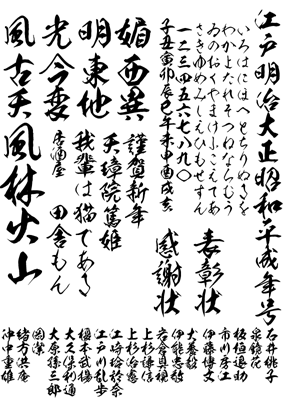 江戸明治大正昭和平成年号
いろはにほへとちりぬるを
わかよたれそつねならむう
ゐのおくやまけふこえてあ
さきゆめみしえひもせすん
一二三四五六七八九〇
子丑寅卯辰巳午未申酉戌亥
表彰状
感謝状
謹賀新年
天璋院篤姫
我輩は猫である
居酒屋 田舎もん
媚西異
明東地
光今変
風古天
風林火山
石井桃子
泉鏡花
板垣退助
市川房江
伊藤博文
伊能忠敬
犬養毅
岩倉具視
上杉謙信
上杉
江崎玲於奈
江戸川乱歩
榎本武揚
大久保利通
大原孫三郎
岡潔
緒方洪庵
沖中重雄